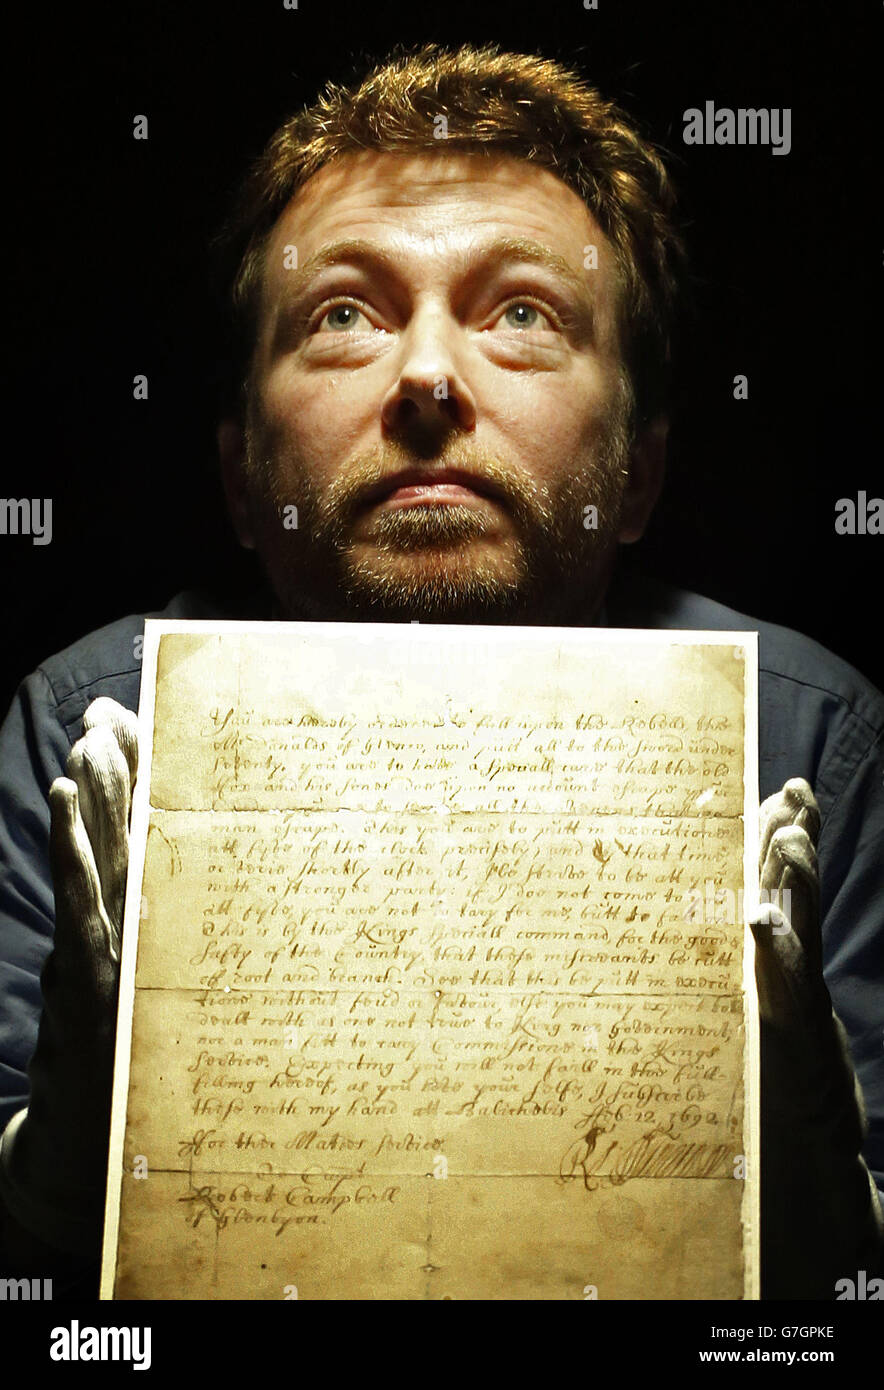 You are hereby ordered to fall upon the Rebells, the
McDonalds of Glenco, and putt all to the sword under
seventy. you are to have a speciall care that the old
Fox and his sones doe upon no account escape your
hands, you are to secure all the avenues that no
man escape. This you are to putt in executione
att fyve of the clock precisely; and by that time,
or verie shortly after it, I'le strive to be att you
with a stronger party: if I doe not come to you
att fyve, you are not to tary for me, butt to fall on.
This is by the Kings speciall command, for the good &
safty of the Country, that these miscreants be cutt
off root and branch. See that this be putt in execu
tione without feud or favour, else you may expect to be
dealt with as one not true to King nor Government,
nor a man fitt to cary Commissione in the Kings
service. Expecting you will not faill in the full-
filling hereof, as you love your selfe, I subscribe
these with my hand att Balicholis Feb: 12, 1692
For ther Maties service
To Capt
Robert Campbell
of Glenlyon.
a alamy
alamy
Image ID: G7GPKE
www.alamy.com